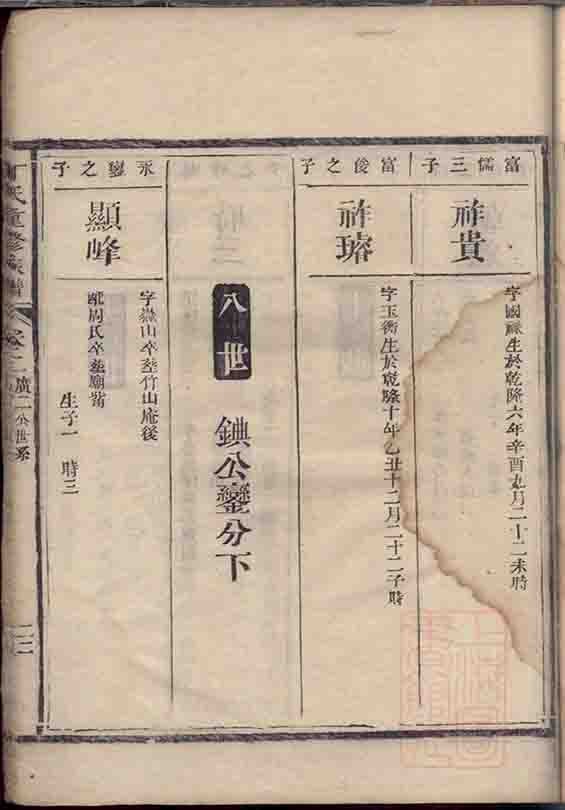 富儒三子
祚貴
字國祿生於乾隆六年辛酉九月二十二未時
富俊之子
祚璿
字玉衡生於乾隆十年乙丑十二月二十二子時
八世
錪公鑾分下
永鑾之子
顯峰
字嶽山卒塟竹山庵後
配周氏卒塟廟背
生子一 時三
丁氏重修族譜
卷之二
廣二公世系